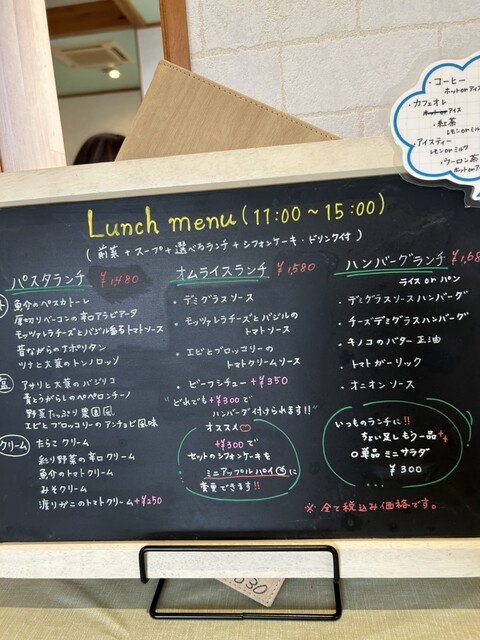 ・コーヒー
ホットorアイス
・カフェオレ
ホットorアイス
・紅茶
レモンorミルク
アイスティー
レモンorミルク
・ウーロン茶
ホットor
Lunch menu (11:00～15:00)
(前菜+スープ+選べるランチ+シフォンケーキ・ドリンク付)
パスタランチ ¥1,480
魚介のペスカトーレ
厚切りベーコンの辛口アラビアータ
モッツァレラチーズとバジル香るトマトソース
昔ながらのナポリタン
ツナと大葉のトンノロッソ
塩
アサリと大葉のバジリコ
青とうがらしのペペロンチーノ
野菜たっぷり農園風
エビとブロッコリーのアンチョビ風味
クリーム
たらこクリーム
彩り野菜の辛口クリーム
魚介のトマトクリーム
みそクリーム
渡りがにのトマトクリーム+¥250
オムライスランチ ¥1,580
・デミグラスソース
・モッツァレラチーズとバジルの
トマトソース
・エビとブロッコリーの
トマトクリームソース
・ビーフシチュー +¥350
"どれでも+¥300で
ハンバーグ付けられます!!"
オススメ♡
+¥300で
セットのシフォンケーキを
ミニアップルパイに
変更できます!!
ハンバーグランチ ¥1,68
ライス or パン
・デミグラスソースハンバーグ
・チーズデミグラスハンバーグ
・キノコのバター正油
・トマトガーリック
・オニオンソース
いつものランチに!!
ちょい足しもう一品++
○単品ミニサラダ
¥300
※全て税込み価格です。